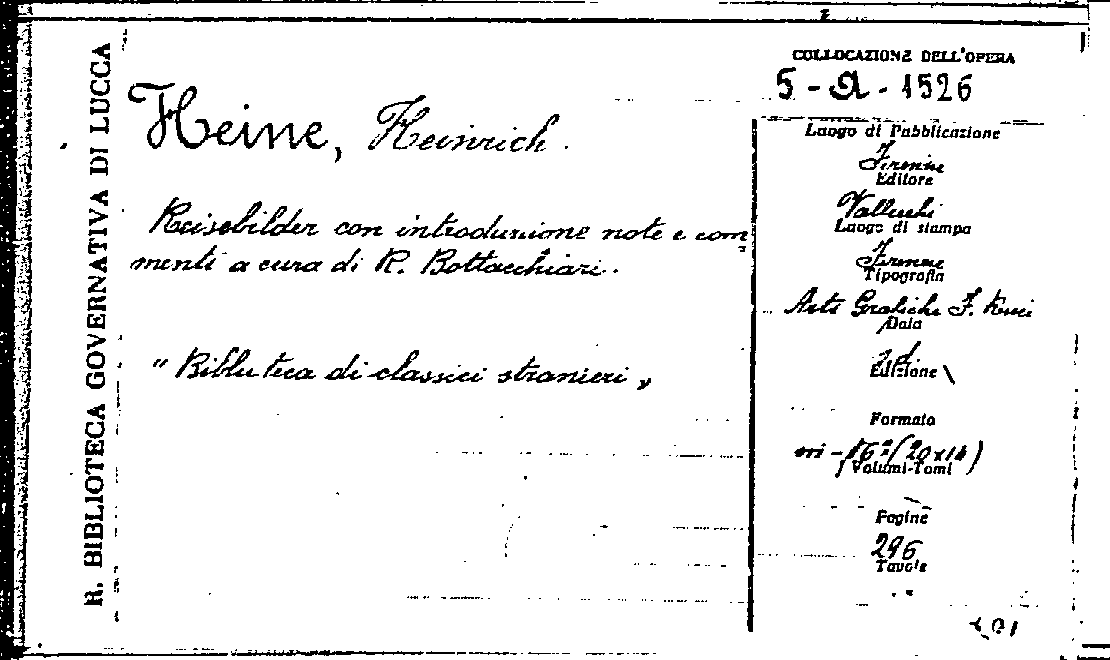 R. BIBLIOTECA GOVERNATIVA DI LUCCA
Heine, Heinrich.
Reisebilder con introduzione note e com
menti a cura di R. Bottacchiari.
"Biblioteca di classici stranieri"
COLLOCAZIONE DELL'OPERA
5 - A - 1526
Luogo di Pubblicazione
Firenze
Editore
Vallecchi
Luogo di stampa
Firenze
Tipografia
Arti Grafiche F.
Data
Edizione
Formato
in-16° (20x14)
Volumi-Tomi
Pagine
296
Tavole